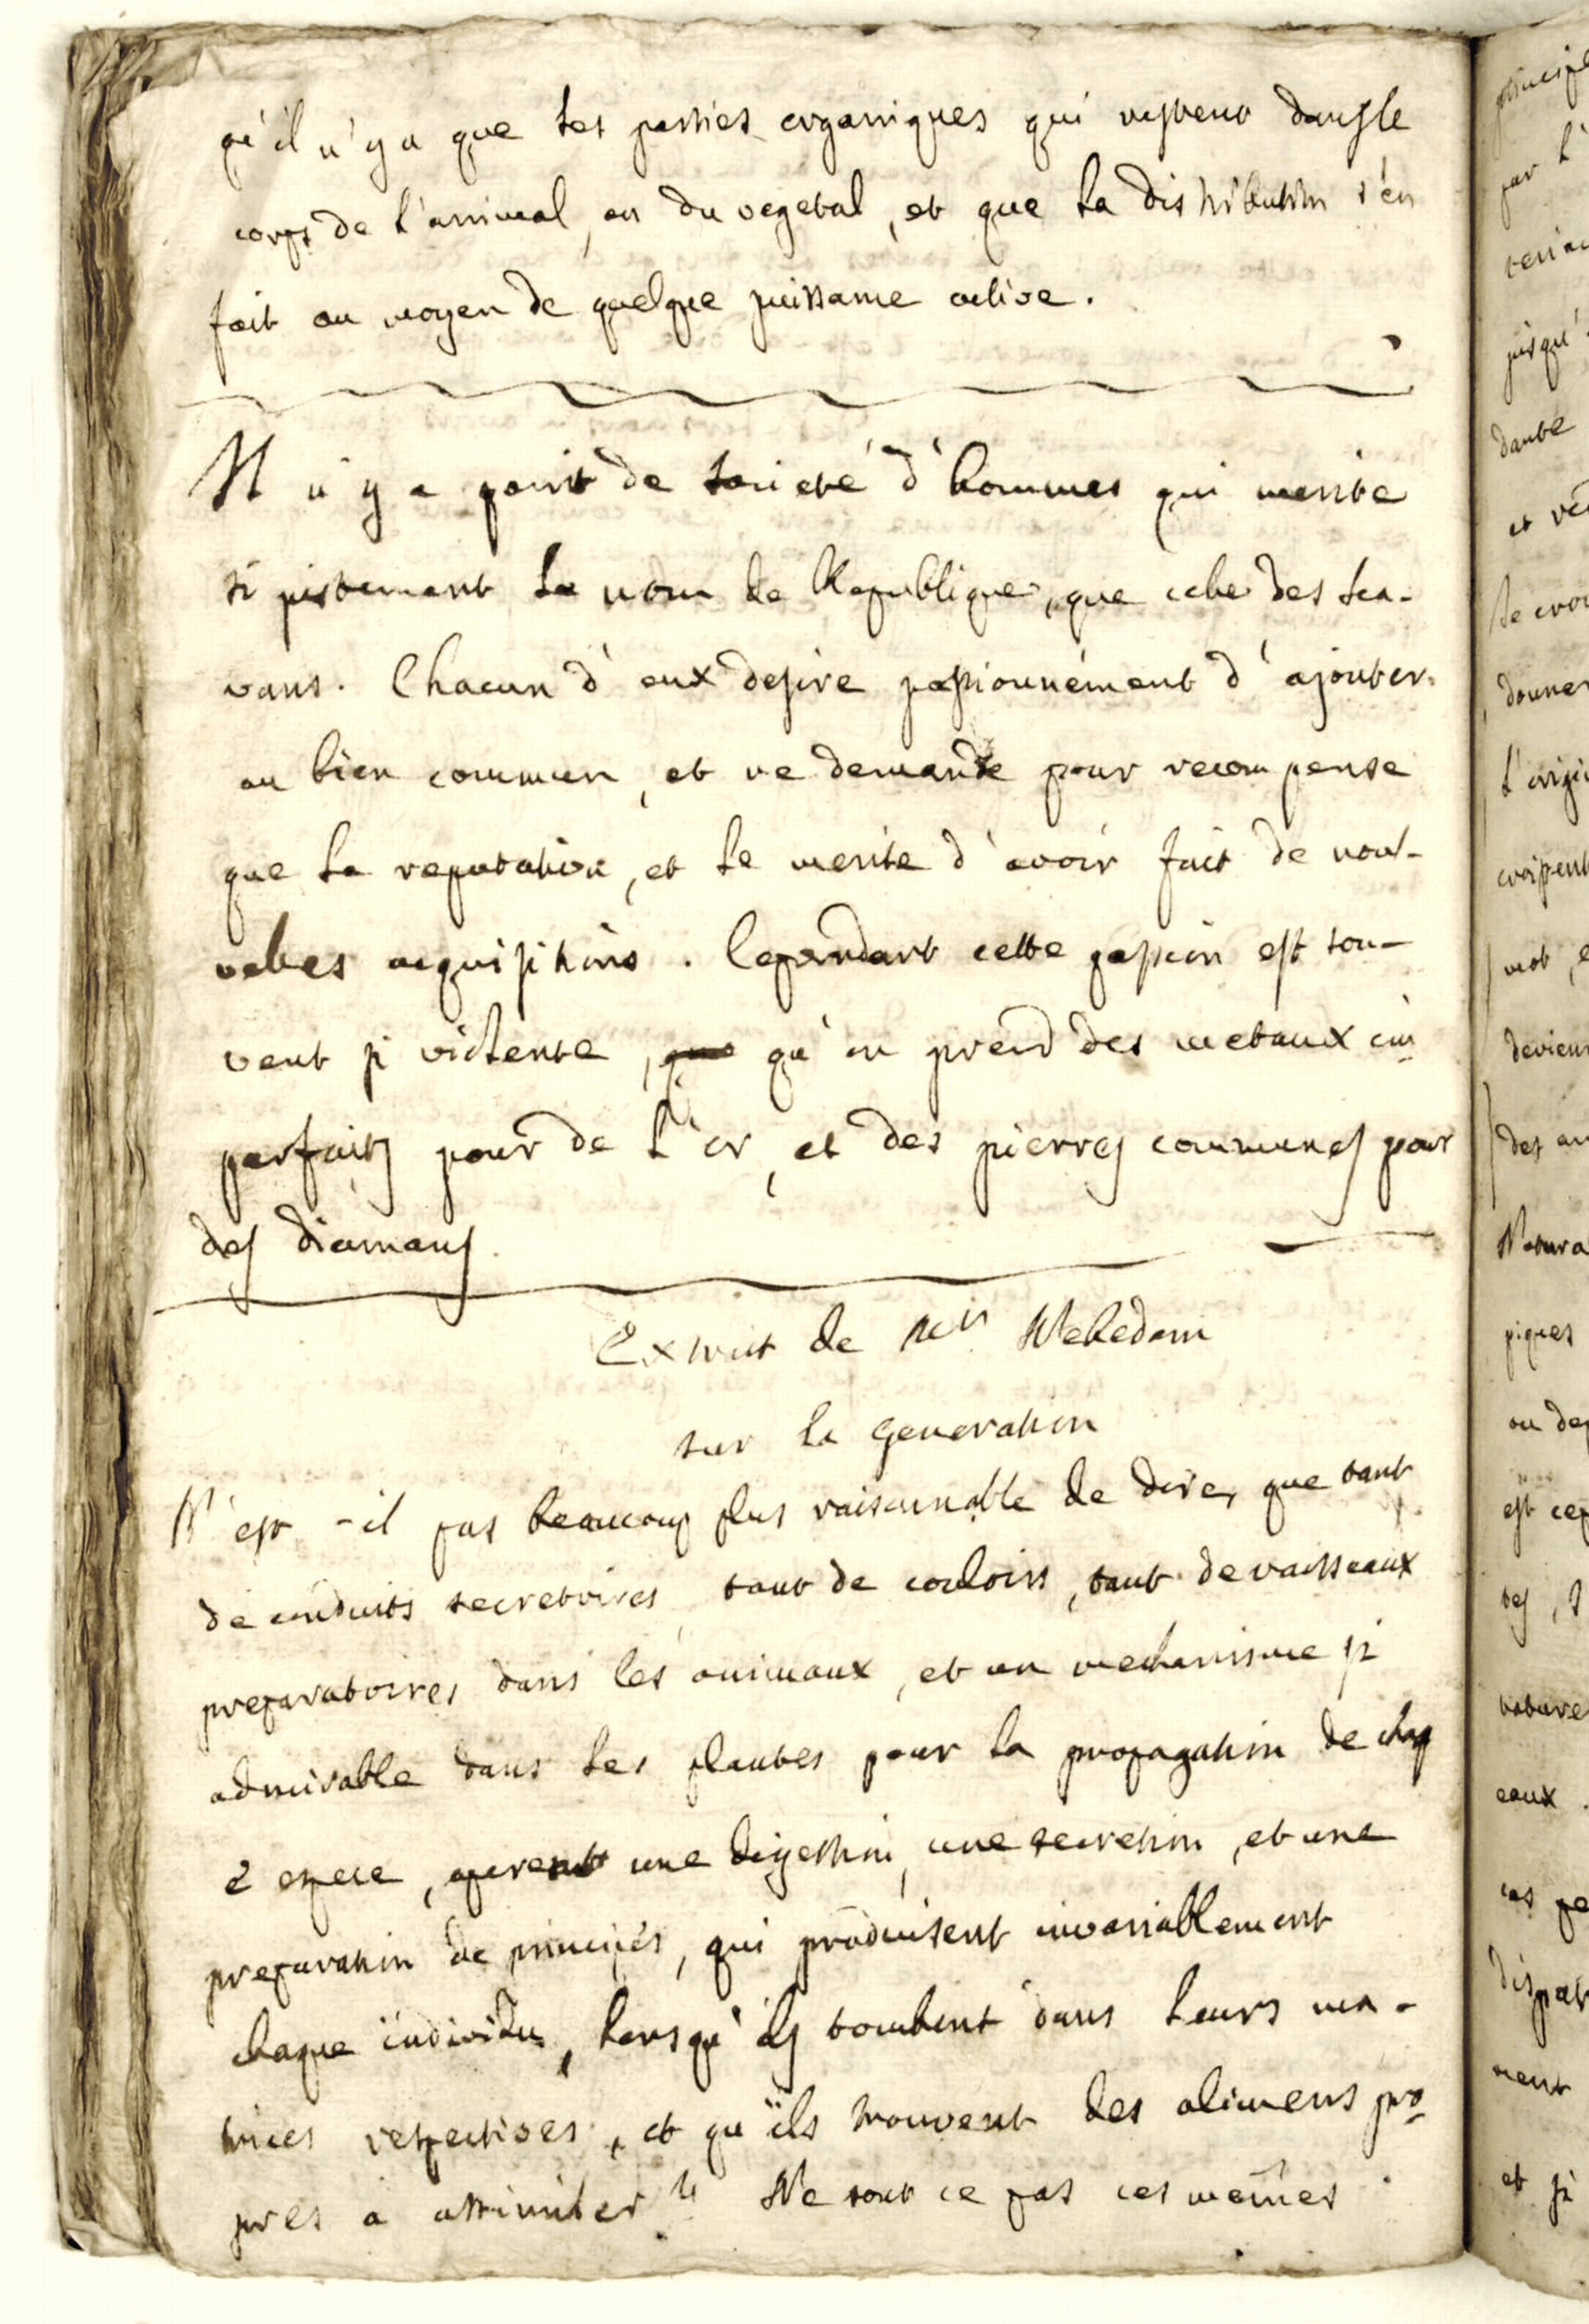 qu'il n'y a que les parties organiques qui restent dans le
corps de l'animal, ou du vegetal, et que la distribution s'en
fait au moyen de quelque puissance active.
Il n'y a point de societé d'hommes qui merite
si justement le nom de Republique, que celle des sca-
vans. Chacun d'eux desire passionnément d'ajouter
au bien commun, et ne demande pour recompense
que la reputation, et le merite d'avoir fait de nou-
velles acquisitions. Cependant cette passion est sou-
vent si violente, qu'on prend des metaux im-
parfaits pour de l'or, et des pierres communes pour
des diamans.
Extrait de Mr Nehedam
sur la Generation
N'est-il pas beaucoup plus raisonnable de dire, que tant
de conduits secretoires, tant de couloirs, tant de vaisseaux
preparatoires dans les animaux, et un mechanisme si
admirable dans les plantes pour la propagation de chaq
e espece, operent une digestion, une secretion, et une
preparation de principes, qui produisent invariablement
chaque individu, lorsqu'ils tombent dans leurs ma-
trices respectives, et qu'ils trouvent des alimens pro-
pres a assimiler? Ne sont ce pas ces mêmes
principe
par l'
jusqu'
dante
et
donner
l'
devien
des
Natura
piques
ou de
est
eaux
et si